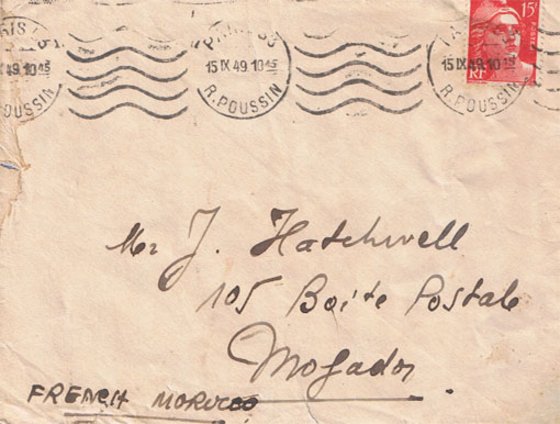 PARIS 83
15 IX 49. 10 45
R. POUSSIN
15F
POSTES
RF
15 IX 49. 10 45
R. POUSSIN
49. 10 45
POUSSIN
Mr J. Hatchwell
105 Boite Postale
Mogador
FRENCH MOROCCO